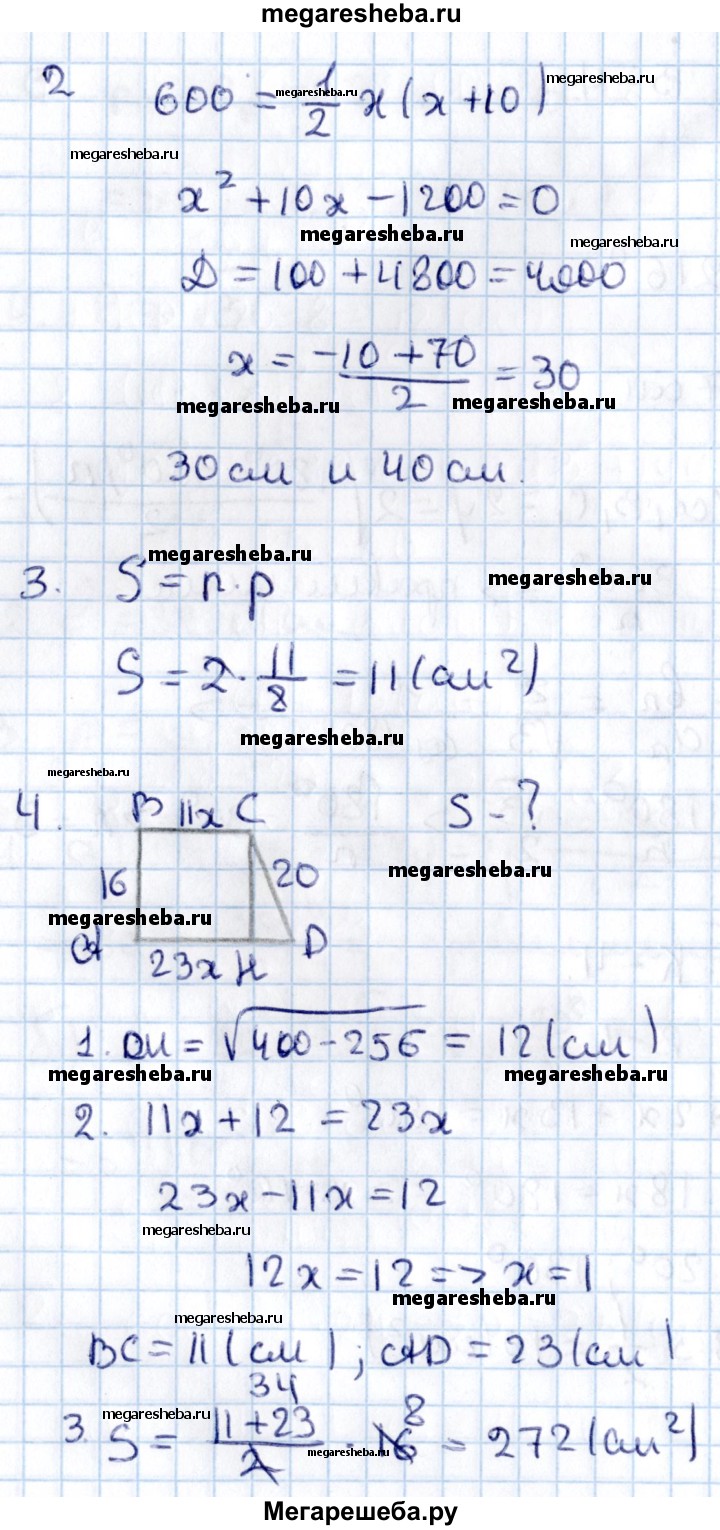 megaresheba.ru
2 600 = 1/2 x(x+10)
megaresheba.ru
megaresheba.ru
megaresheba.ru
x² + 10x - 1200 = 0
megaresheba.ru
megaresheba.ru
D = 100 + 4800 = 4000
x = (-10 + 70)/2 = 30
megaresheba.ru
megaresheba.ru
30 см и 40 см.
megaresheba.ru
3. S = r·p
megaresheba.ru
S = 2 · 11/8 = 11 (см²)
megaresheba.ru
megaresheba.ru
4. B 11x C S - ?
16 20
megaresheba.ru
megaresheba.ru
A 23x H D
1. DH = √(400 - 256) = 12 (см)
megaresheba.ru
megaresheba.ru
2. 11x + 12 = 23x
23x - 11x = 12
megaresheba.ru
12x = 12 => x = 1
megaresheba.ru
megaresheba.ru
BC = 11 (см); AD = 23 (см)
34
megaresheba.ru
3. S = (11 + 23)/2 · 16 8 = 272 (см²)
megaresheba.ru
Мегарешеба.ру